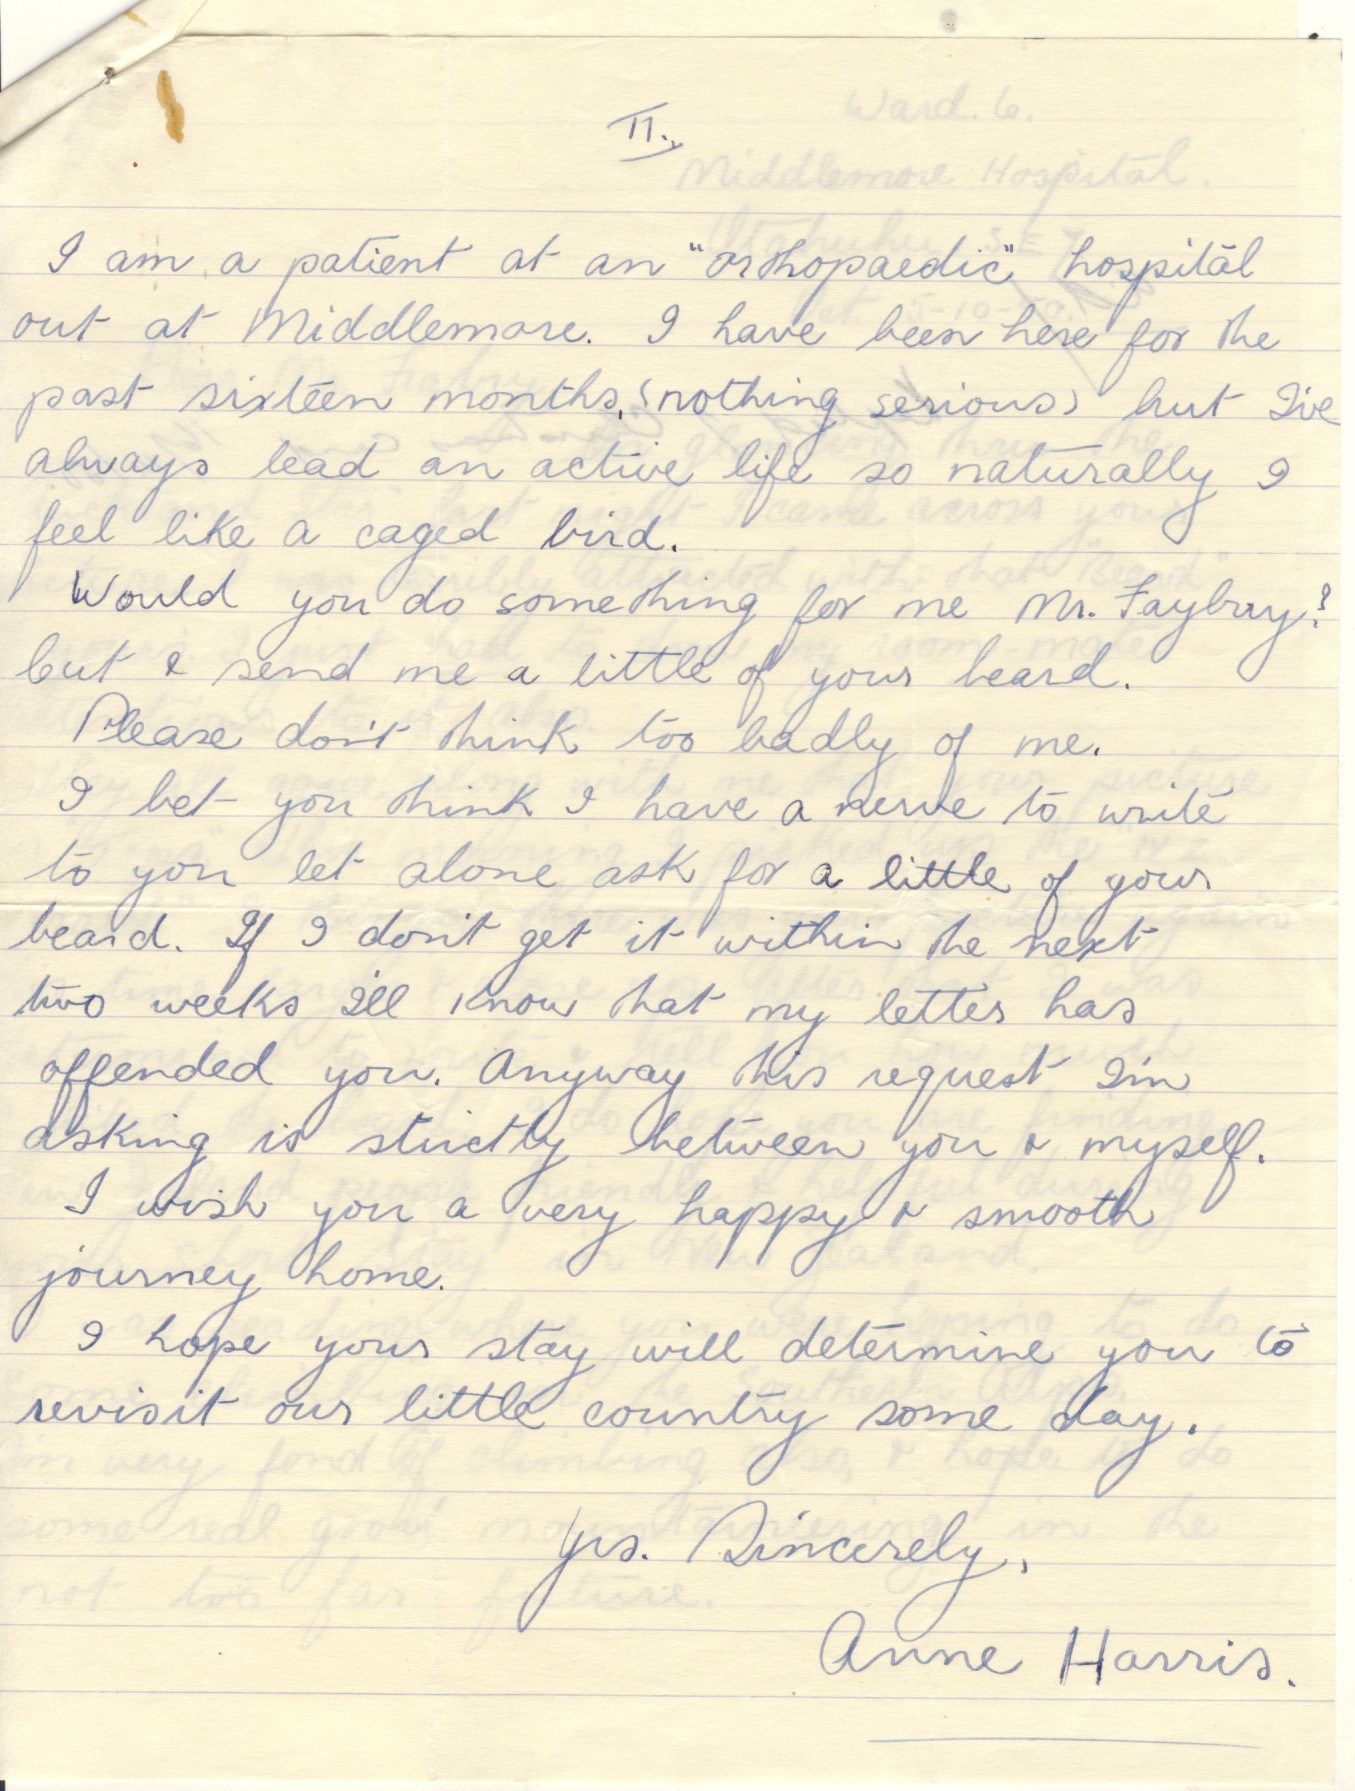 II.
I am a patient at an "orthopaedic" hospital
out at Middlemore. I have been here for the
past sixteen months, (nothing serious) but I've
always lead an active life so naturally I
feel like a caged bird.
Would you do something for me Mr. Faybury?
cut & send me a little of your beard.
Please don't think too badly of me.
I bet you think I have a nerve to write
to you let alone ask for a little of your
beard. If I don't get it within the next
two weeks I'll know that my letter has
offended you. Anyway this request I'm
asking is strictly between you & myself.
I wish you a very happy & smooth
journey home.
I hope your stay will determine you to
revisit our little country some day.
Yrs. Sincerely,
Anne Harris.